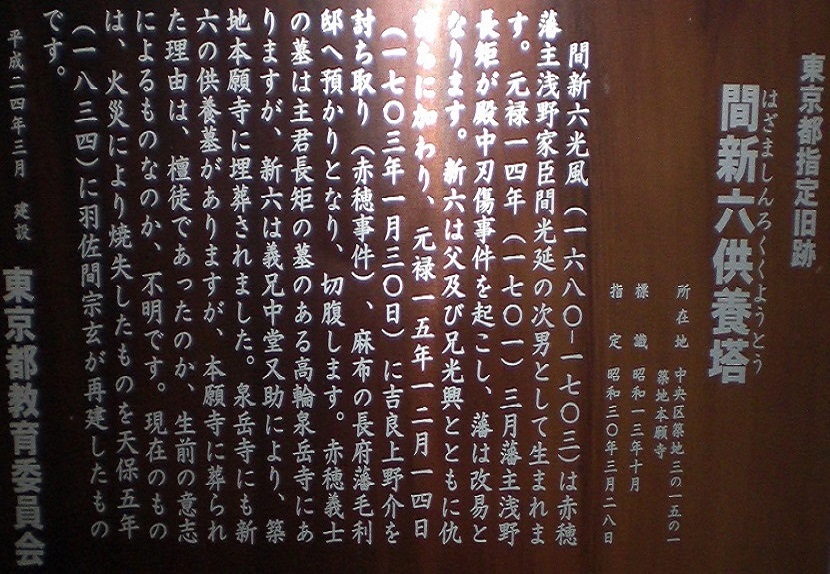 東京都指定旧跡
はざましんろくくようとう
間新六供養塔
所在地 中央区築地三の一五の一
築地本願寺
標識 昭和一三年十月
指定 昭和三〇年三月二八日
間新六光風（一六八〇ー一七〇三）は赤穂
藩主浅野家臣間光延の次男として生まれま
す。元禄一四年（一七〇一）三月藩主浅野
長矩が殿中刃傷事件を起こし、藩は改易と
なります。新六は父及び兄光興とともに仇
討ちに加わり、元禄一五年一二月一四日
（一七〇三年一月三〇日）に吉良上野介を
討ち取り（赤穂事件）、麻布の長府藩毛利
邸へ預かりとなり、切腹します。赤穂義士
の墓は主君長矩の墓のある高輪泉岳寺にあ
りますが、新六は義兄中堂又助により、築
地本願寺に埋葬されました。泉岳寺にも新
六の供養墓がありますが、本願寺に葬られ
た理由は、檀徒であったのか、生前の意志
によるものなのか、不明です。現在のもの
は、火災により焼失したものを天保五年
（一八三四）に羽佐間宗玄が再建したもの
です。
平成二四年三月 建設
東京都教育委員会